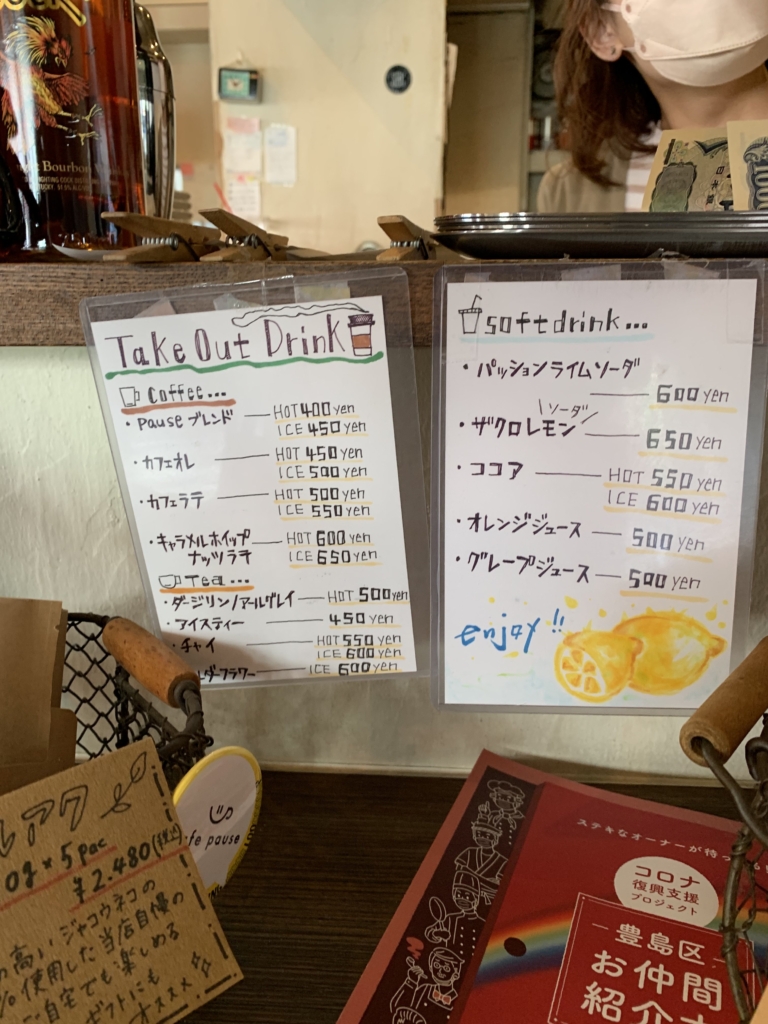 Bourbon
FIGHTING COCK
1000
Take Out Drink
Coffee...
・Pause ブレンド — HOT 400 yen
ICE 450 yen
・カフェオレ — HOT 450 yen
ICE 500 yen
・カフェラテ — HOT 500 yen
ICE 550 yen
・キャラメルホイップ — HOT 600 yen
ナッツラテ ICE 650 yen
Tea...
・ダージリン/アールグレイ — HOT 500 yen
・アイスティー — 450 yen
・チャイ — HOT 550 yen
ICE 600 yen
ルダーフラワー — ICE 600 yen
soft drink...
・パッションライムソーダ
— 600 yen
\ソーダ/
・ザクロレモン — 650 yen
・ココア — HOT 550 yen
ICE 600 yen
・オレンジジュース — 500 yen
・グレープジュース — 500 yen
enjoy!!
ルアク
0g×5pac
¥2.480(税込)
の高い、ジャコウネコの
%使用した当店自慢の
ご自宅でも楽しめる
ギフトにも
オススメ
fe pause
ステキなオーナーが待っ
コロナ
復興支援
プロジェクト
豊島区
お仲間
紹介